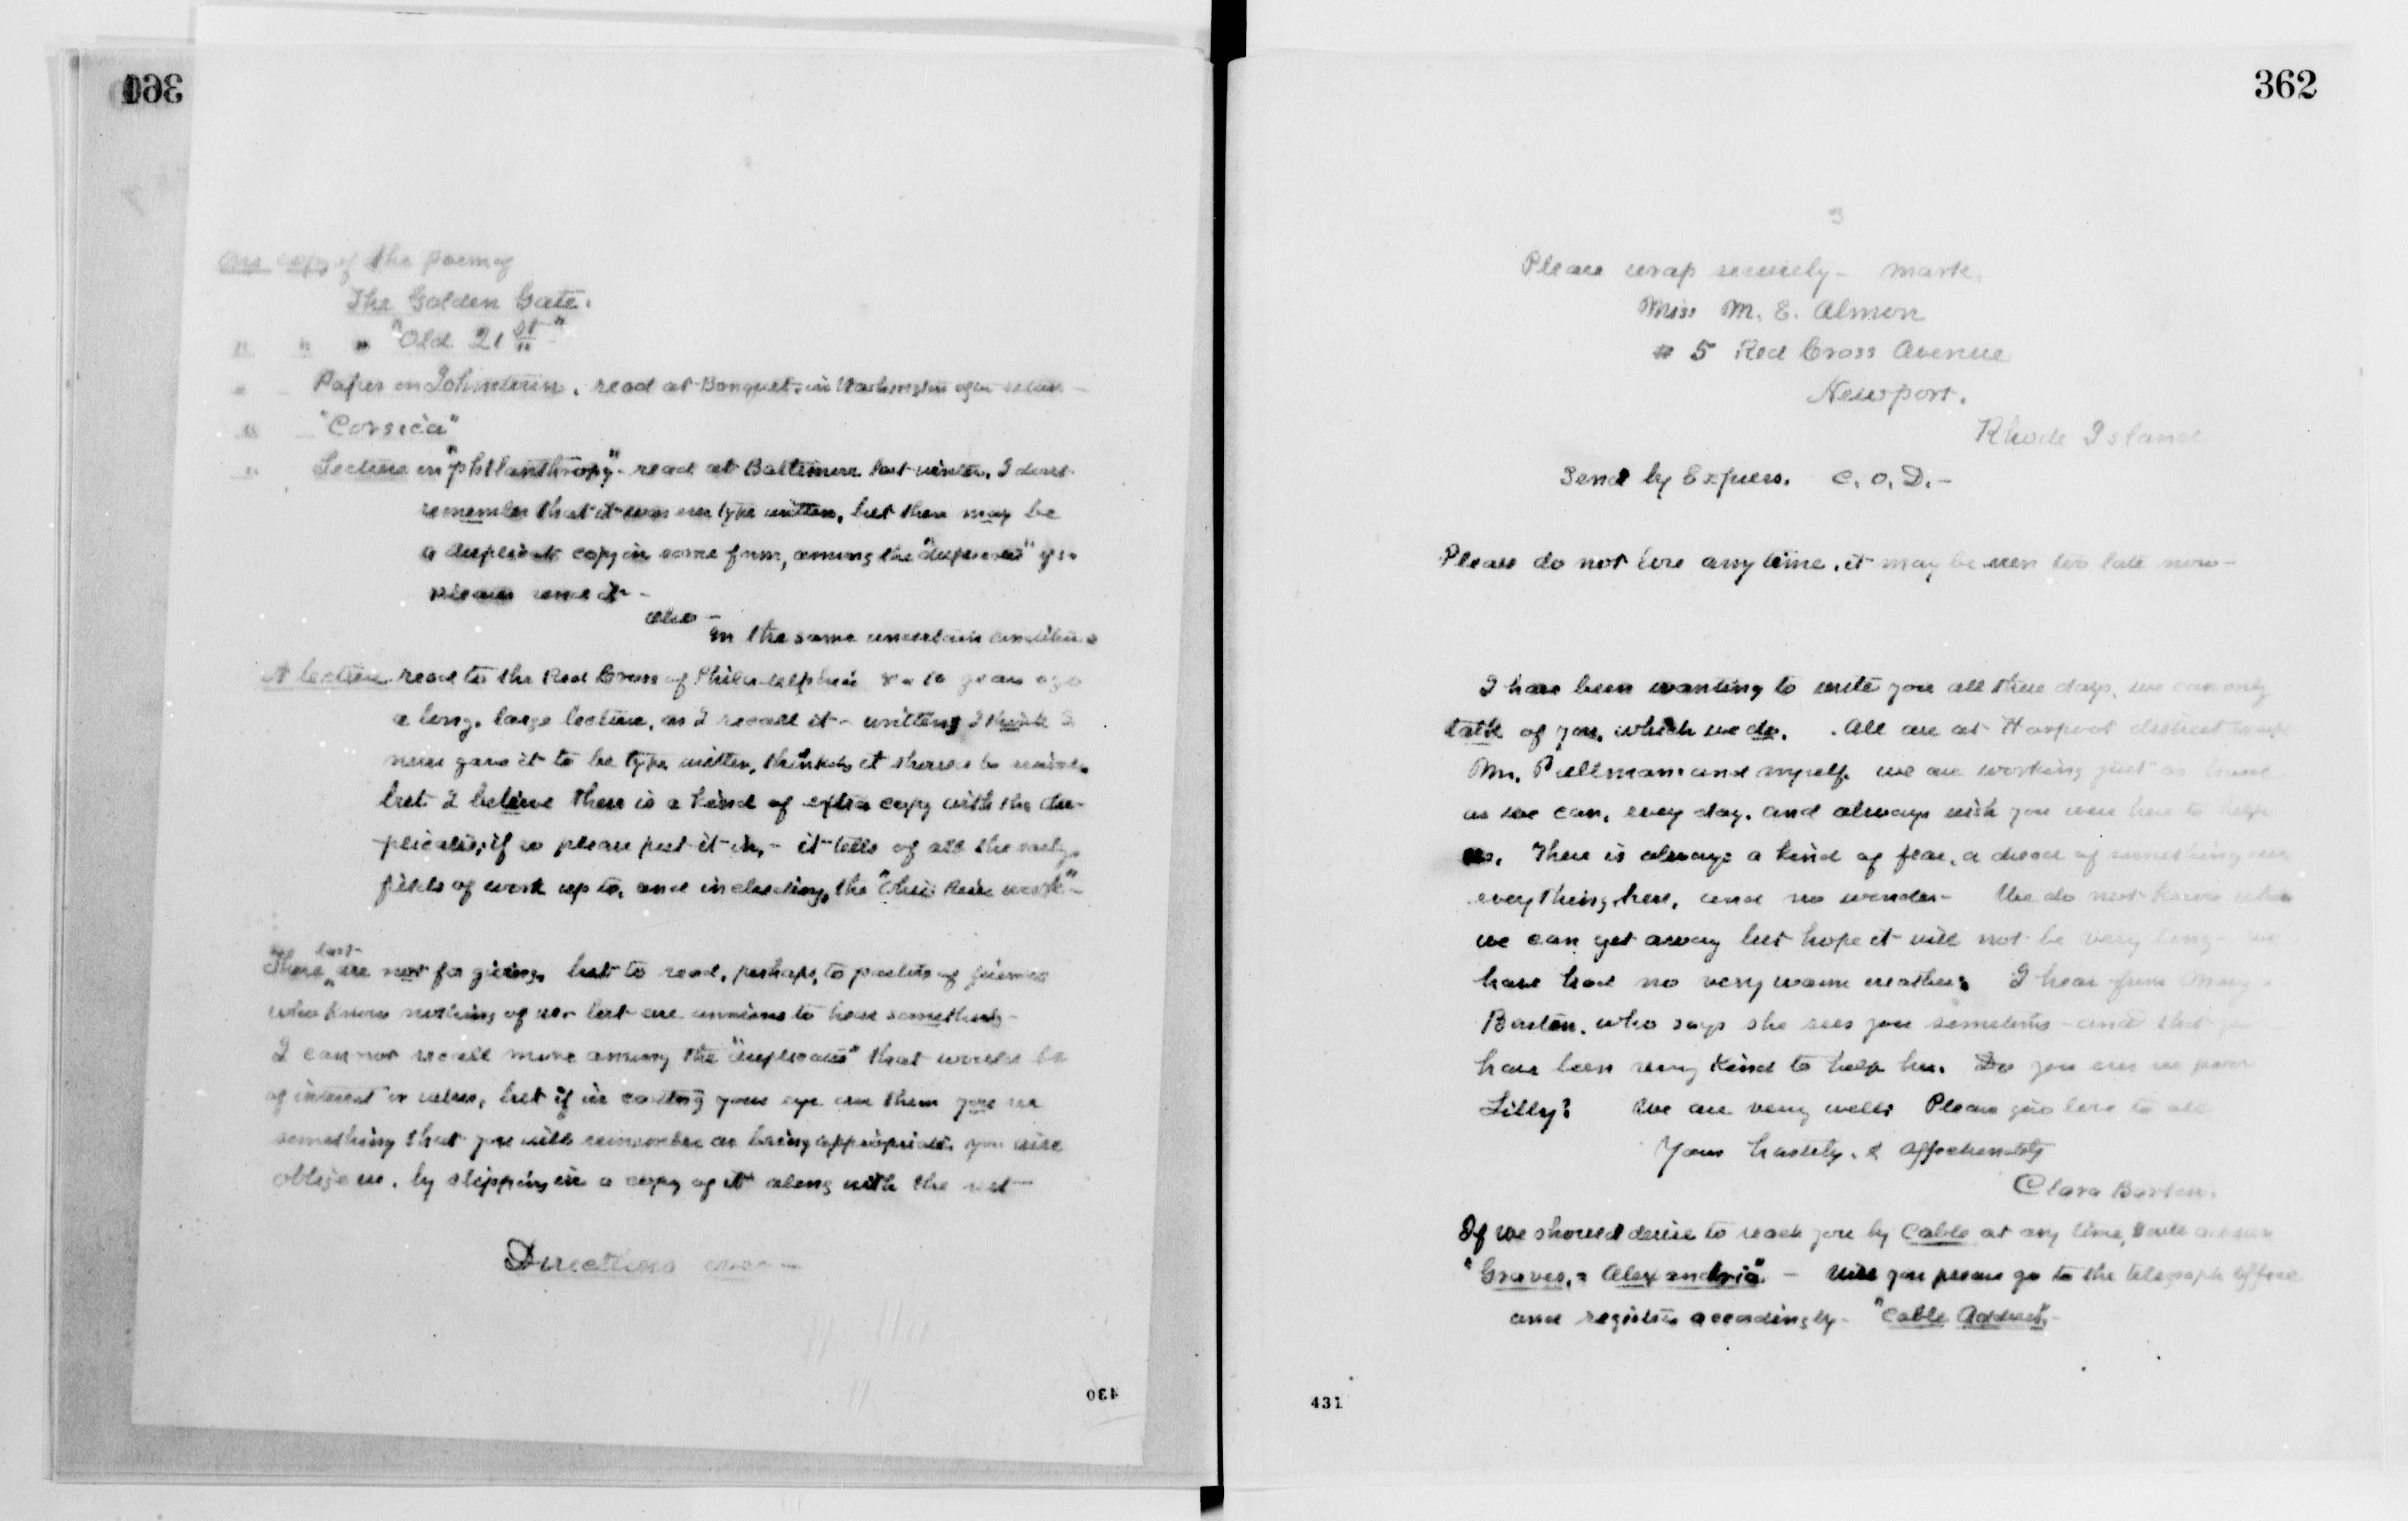 One copy of the poem of
The Golden Gate.
" " " "Old 21st"
" " Paper on Johnstown, read at Banquet in Washington after return -
" " "Corsica"
" " Lecture on "philanthropy" - read at Baltimore last winter, I dont
remember that it was ever type written, but there may be
a duplicate copy in some form, among the "duplicates" if so
please send it -
also -
in the same uncertain condition
A lecture read to the Red Cross of Philadelphia 8 or 10 years ago
a long, large lecture, as I recall it - written, I think I
never gave it to be type written, thinking it should be
but I believe there is a kind of extra copy with the du-
plicates, if so please put it in, - it tells of all the early
fields of work up to, and including, the "Ohio River work" -
The last
These are not for giving, but to read, perhaps, to parties of friends
who know nothing of us - but are anxious to hear something -
I can not recall more among the "duplicates" that would be
of interest or value, but if in casting your eye over them you see
something that you will remember as being appropriate, you will
oblige us, by slipping in a copy of it along with the rest -
Directions over -
430
362
3
Please wrap securely - mark.
Miss M. E. Almon
# 5 Red Cross Avenue
Newport.
Rhode Island
Send by Express. C. O. D. -
Please do not lose any time, it may be even too late now -
I have been wanting to write you all these days, we can only
talk of you, which we do. All are at Harpoot district except
Mr. Pullman and myself. we are working just as hard
as we can, every day, and always wish you were here to help
us. There is always a kind of fear, a dread of something over
everything here, and no wonder - We do not know when
we can get away but hope it will not be very long - we
have had no very warm weather. I hear from Mary
Barton, who says she sees you sometimes - and that you
have been very kind to help her. Do you ever see poor
Lilly? We are very well. Please give love to all
Yours hastily, & affectionately
Clara Barton.
If we should desire to reach you by Cable at any time, I will address
"Graves, = Alexandria" - Will you please go to the telegraph office
and register accordingly - "Cable Address" -
431